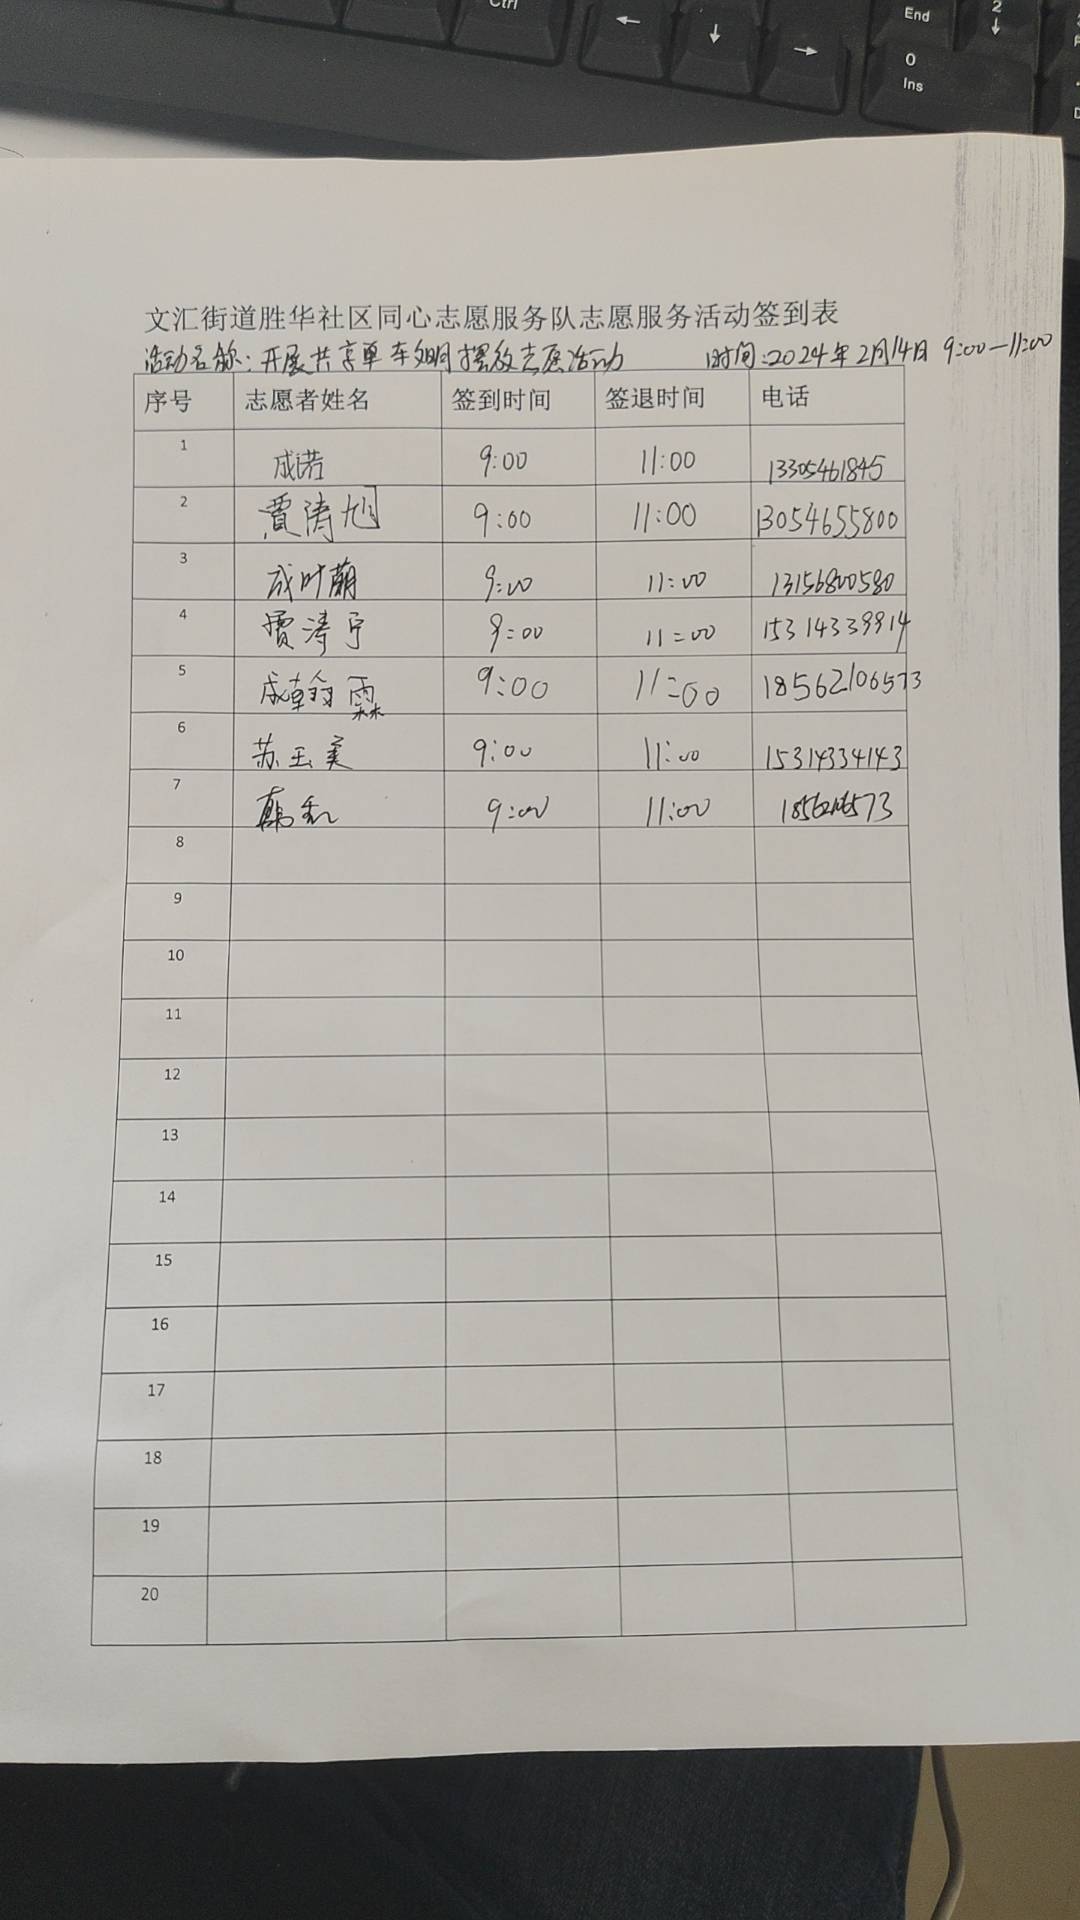 Ctrl
←
↓
→
End
2
↓
0
Ins
文汇街道胜华社区同心志愿服务队志愿服务活动签到表
活动名称:开展共享单车文明摆放志愿活动 时间:2024年2月14日 9:00—11:00
序号 志愿者姓名 签到时间 签退时间 电话
1 成诺 9:00 11:00 13305461845
2 賈涛旭 9:00 11:00 13054655800
3 成叶萌 9:00 11:00 13156800580
4 賈涛宁 9:00 11:00 15314339914
5 成翰霖 9:00 11:00 18562106573
6 苏玉美 9:00 11:00 15314334143
7 9:00 11:00
8
9
10
11
12
13
14
15
16
17
18
19
20